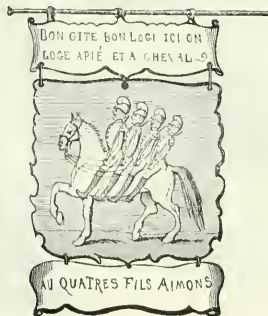 BON GITE BON LOGI ICI ON
LOGE APIÉ ET A CHEVAL
AU QUATRES FILS AIMONS